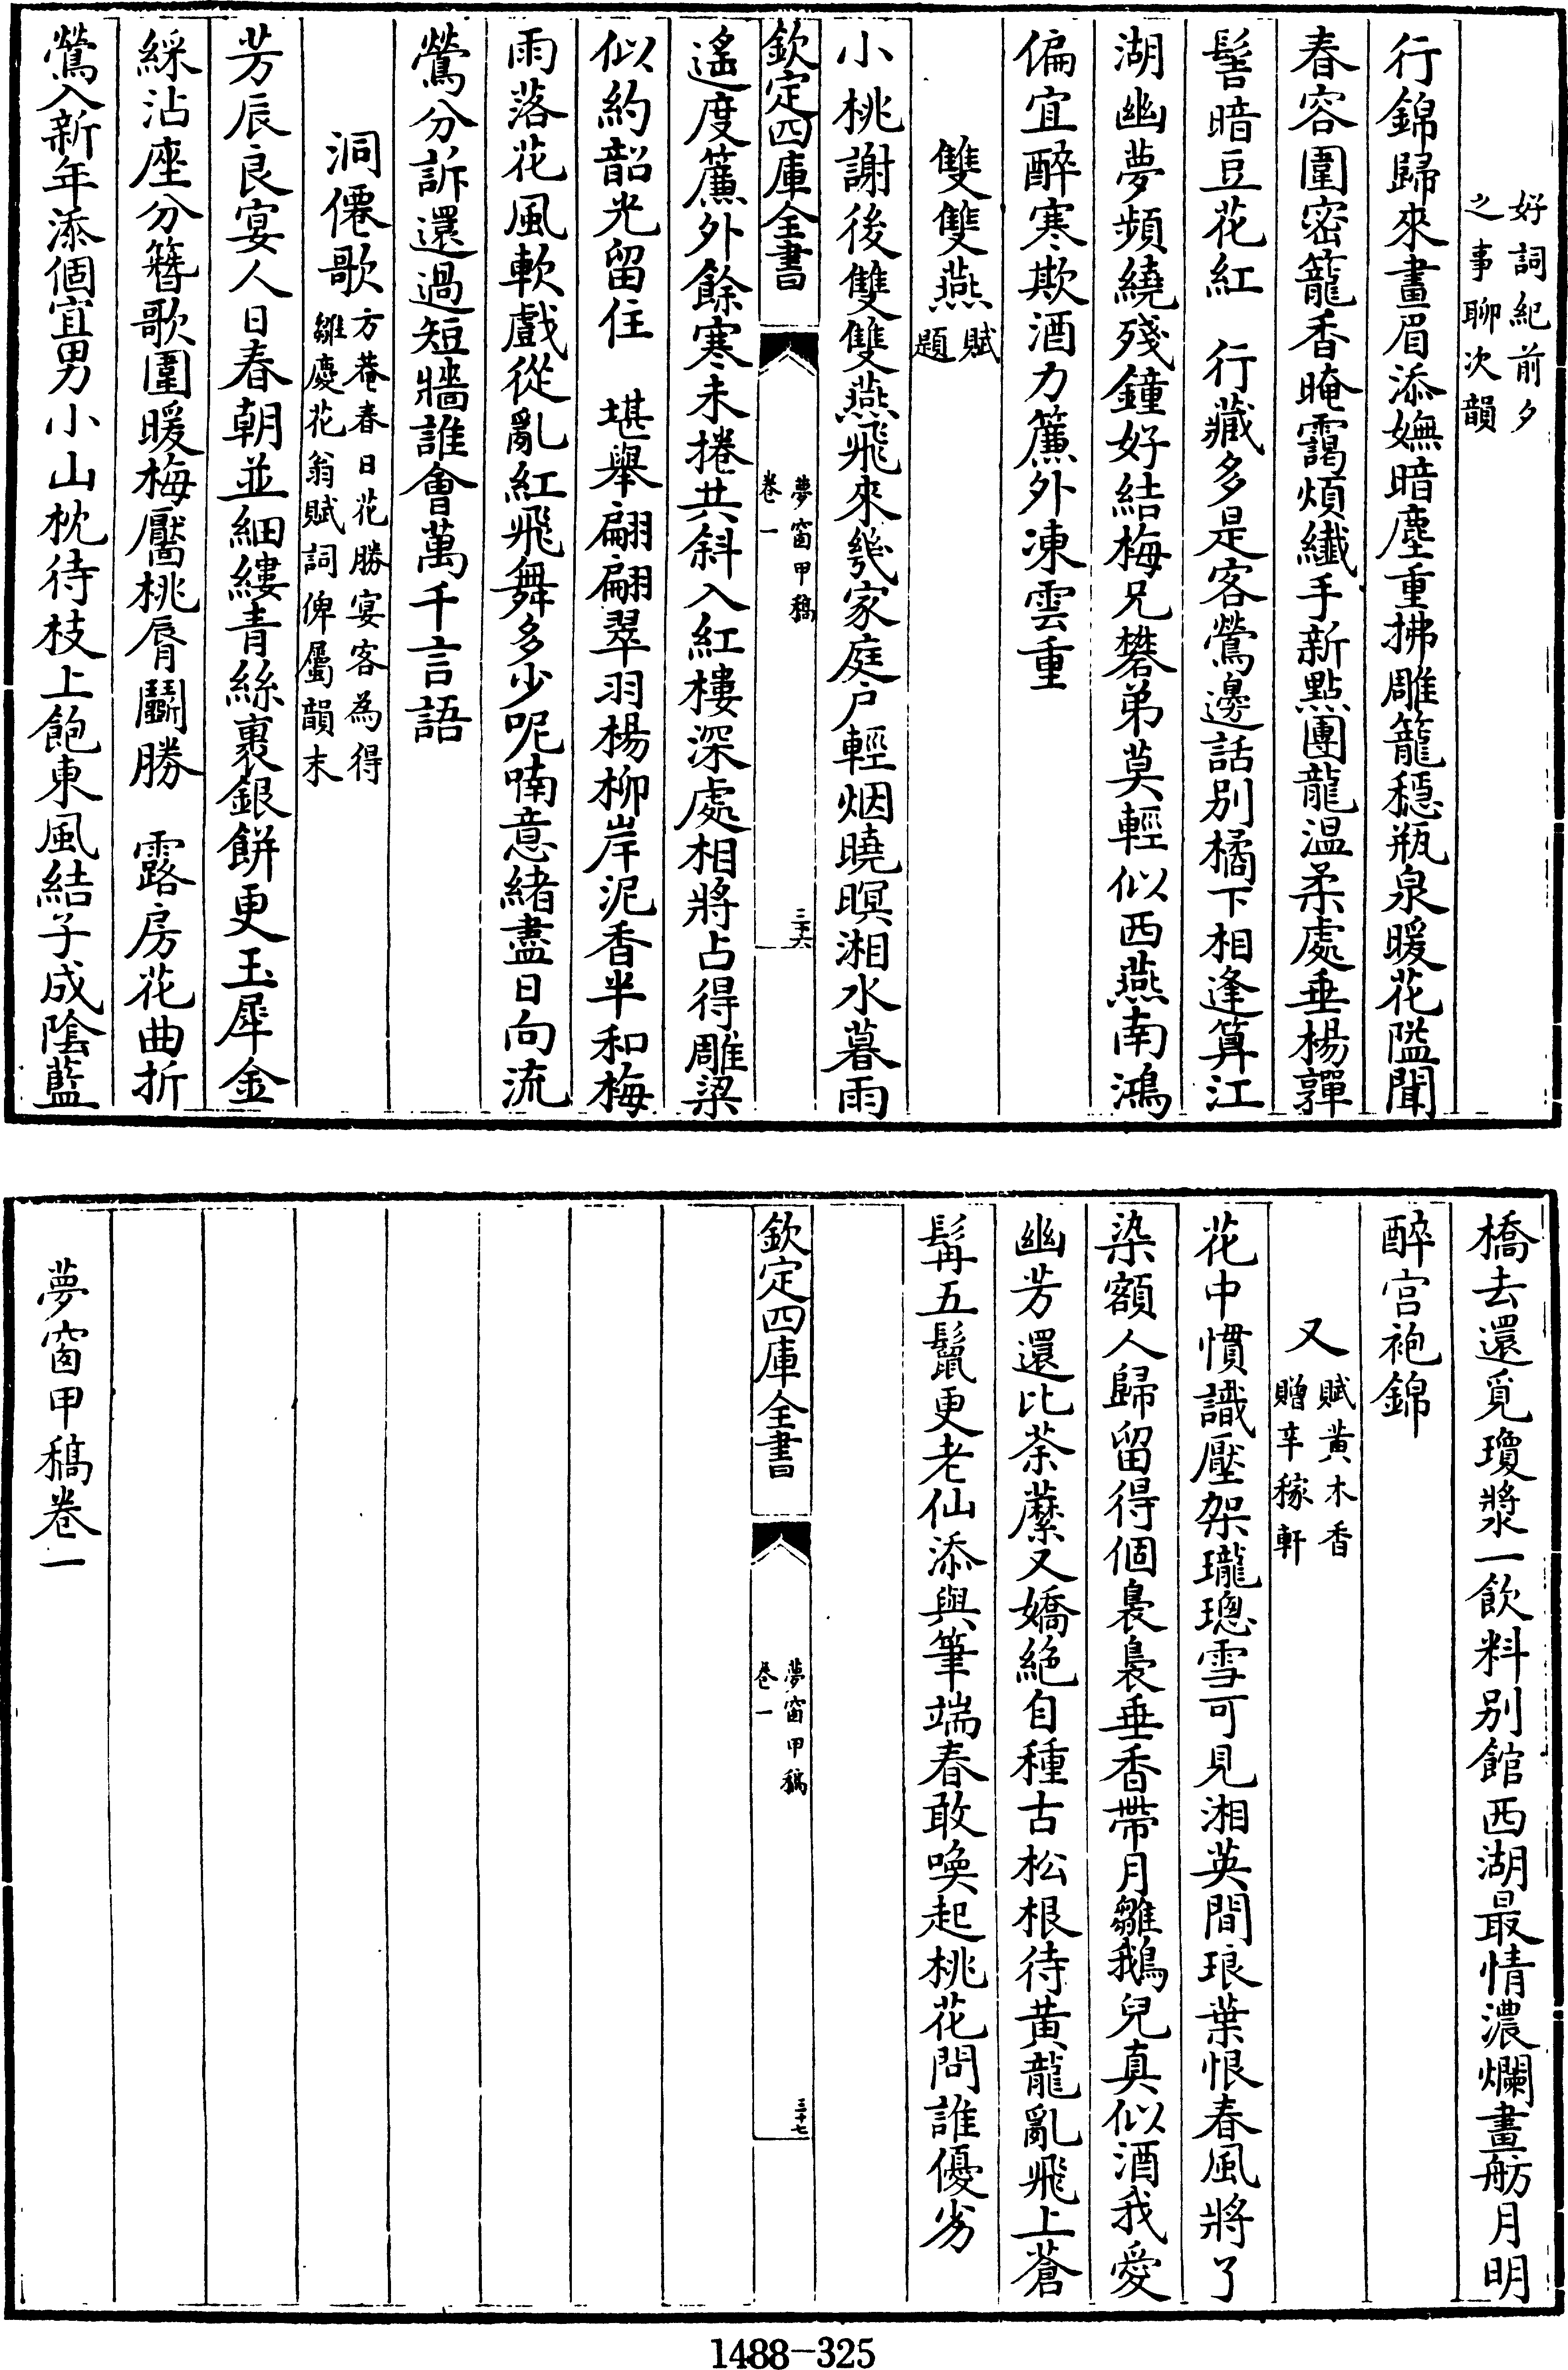 好詞紀前夕
之事聊次韻
行錦歸來畫眉添嫵暗塵重拂雕籠穩瓶泉暖花隘聞
春容圍密籠香晻靄煩纖手新點團龍温柔處垂楊嚲
髻暗豆花紅　行藏多是客鶯邊話别橘下相逢算江
湖幽夢頻繞殘鐘好結梅兄礬弟莫輕似西燕南鴻
偏宜醉寒欺酒力簾外凍雲重
雙雙燕賦
題
小桃謝後雙雙燕飛來幾家庭户輕烟曉暝湘水暮雨
欽定四庫全書
夢窗甲稿
卷一
三十六
遙度簾外餘寒未捲共斜入紅樓深處相將占得雕梁
似約韶光留住　堪舉翩翩翠羽楊柳岸泥香半和梅
雨落花風軟戲從亂紅飛舞多少呢喃意緒盡日向流
鶯分訴還過短牆誰會萬千言語
洞僊歌方菴春日花勝宴客為得
雛慶花翁賦詞俾屬韻末
芳辰良宴人日春朝並細縷青絲裹銀餅更玉犀金
綵沾座分簪歌圍暖梅靨桃脣鬭勝　露房花曲折
鶯入新年添個宜男小山枕待枝上飽東風結子成陰藍
橋去還覓瓊漿一飲料别館西湖最情濃爛畫舫月明
醉宫袍錦
又賦黄木香
贈辛稼軒
花中慣識壓架瓏璁雪可見湘英間琅葉恨春風將了
染額人歸留得個裊裊垂香帶月雛鵝兒真似酒我愛
幽芳還比荼蘼又嬌絶自種古松根待黄龍亂飛上蒼
髯五鬛更老仙添與筆端春敢喚起桃花問誰優劣
欽定四庫全書
夢窗甲稿
卷一
三十七
夢窗甲稿卷一
1488-325